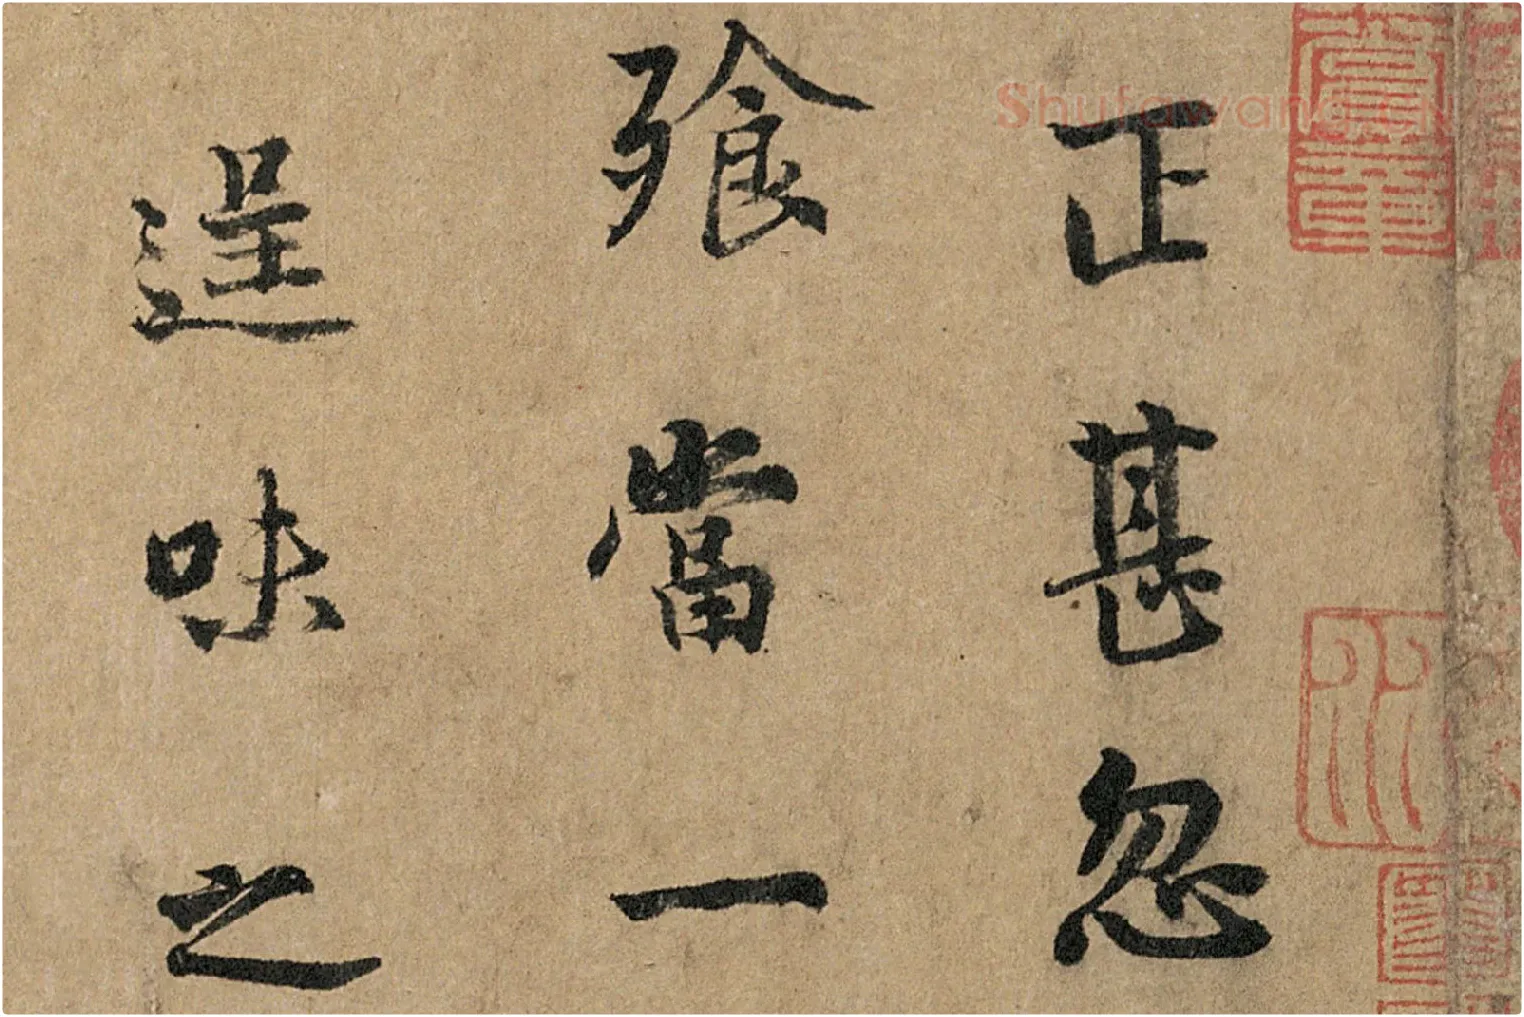 正甚忽
飱當一
逞味之
Shufawang.CN